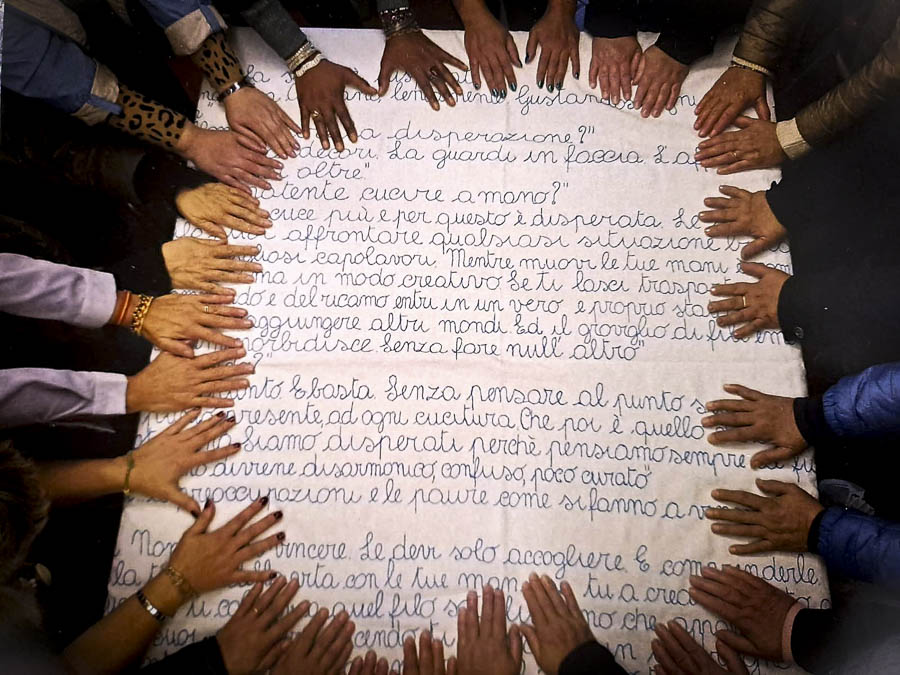 la
lentamente Gustandosi ogni
a disperazione?"
decori. La guardi in faccia. L'a
oltre."
cucire a mano?"
cuce più e per questo è disperata. Se
affrontare qualsiasi situazione
capolavori. Mentre muovi le tue mani e
ma in modo creativo. Se ti lasci traspo
do e del ricamo entri in un vero e proprio sta
aggiungere altri mondi. Ed il groviglio di fili em
morbidisce. Senza fare null'altro"
?"
unto E basta. Senza pensare al punto s
presente, ad ogni cucitura. Che poi è quello
siamo disperati perchè pensiamo sempre la fi
diviene disarmonico, confuso, poco curato"
preoccupazioni e le paure come si fanno a vin
Non vincere. Le devi solo accogliere. E comprenderle
la con le tue man tu a crea
quel filo no che
cendo